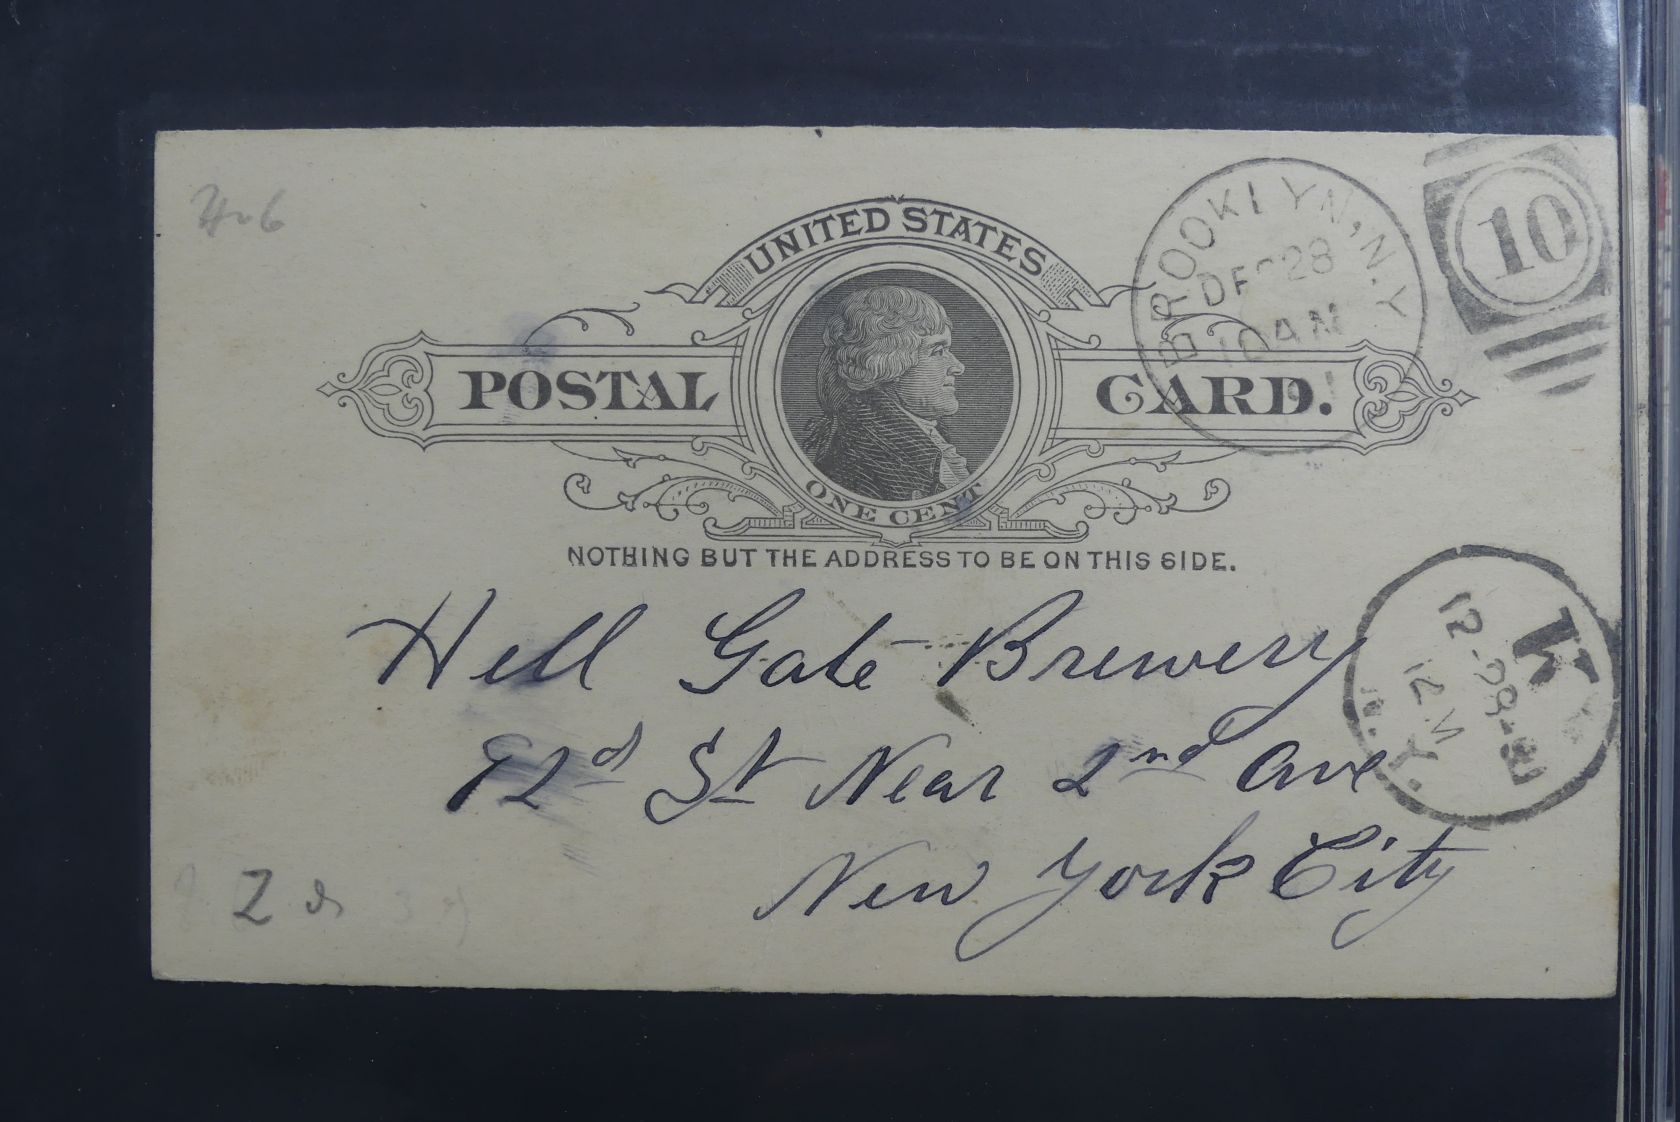 UNITED STATES
POSTAL CARD.
ONE CENT
NOTHING BUT THE ADDRESS TO BE ON THIS SIDE.
BROOKLYN, N.Y.
DEC 28
10 AM
10
Hell Gate Brewery
92d St Near 2nd Ave
New York City
K
12-28-91
12 M
N.Y.
Z